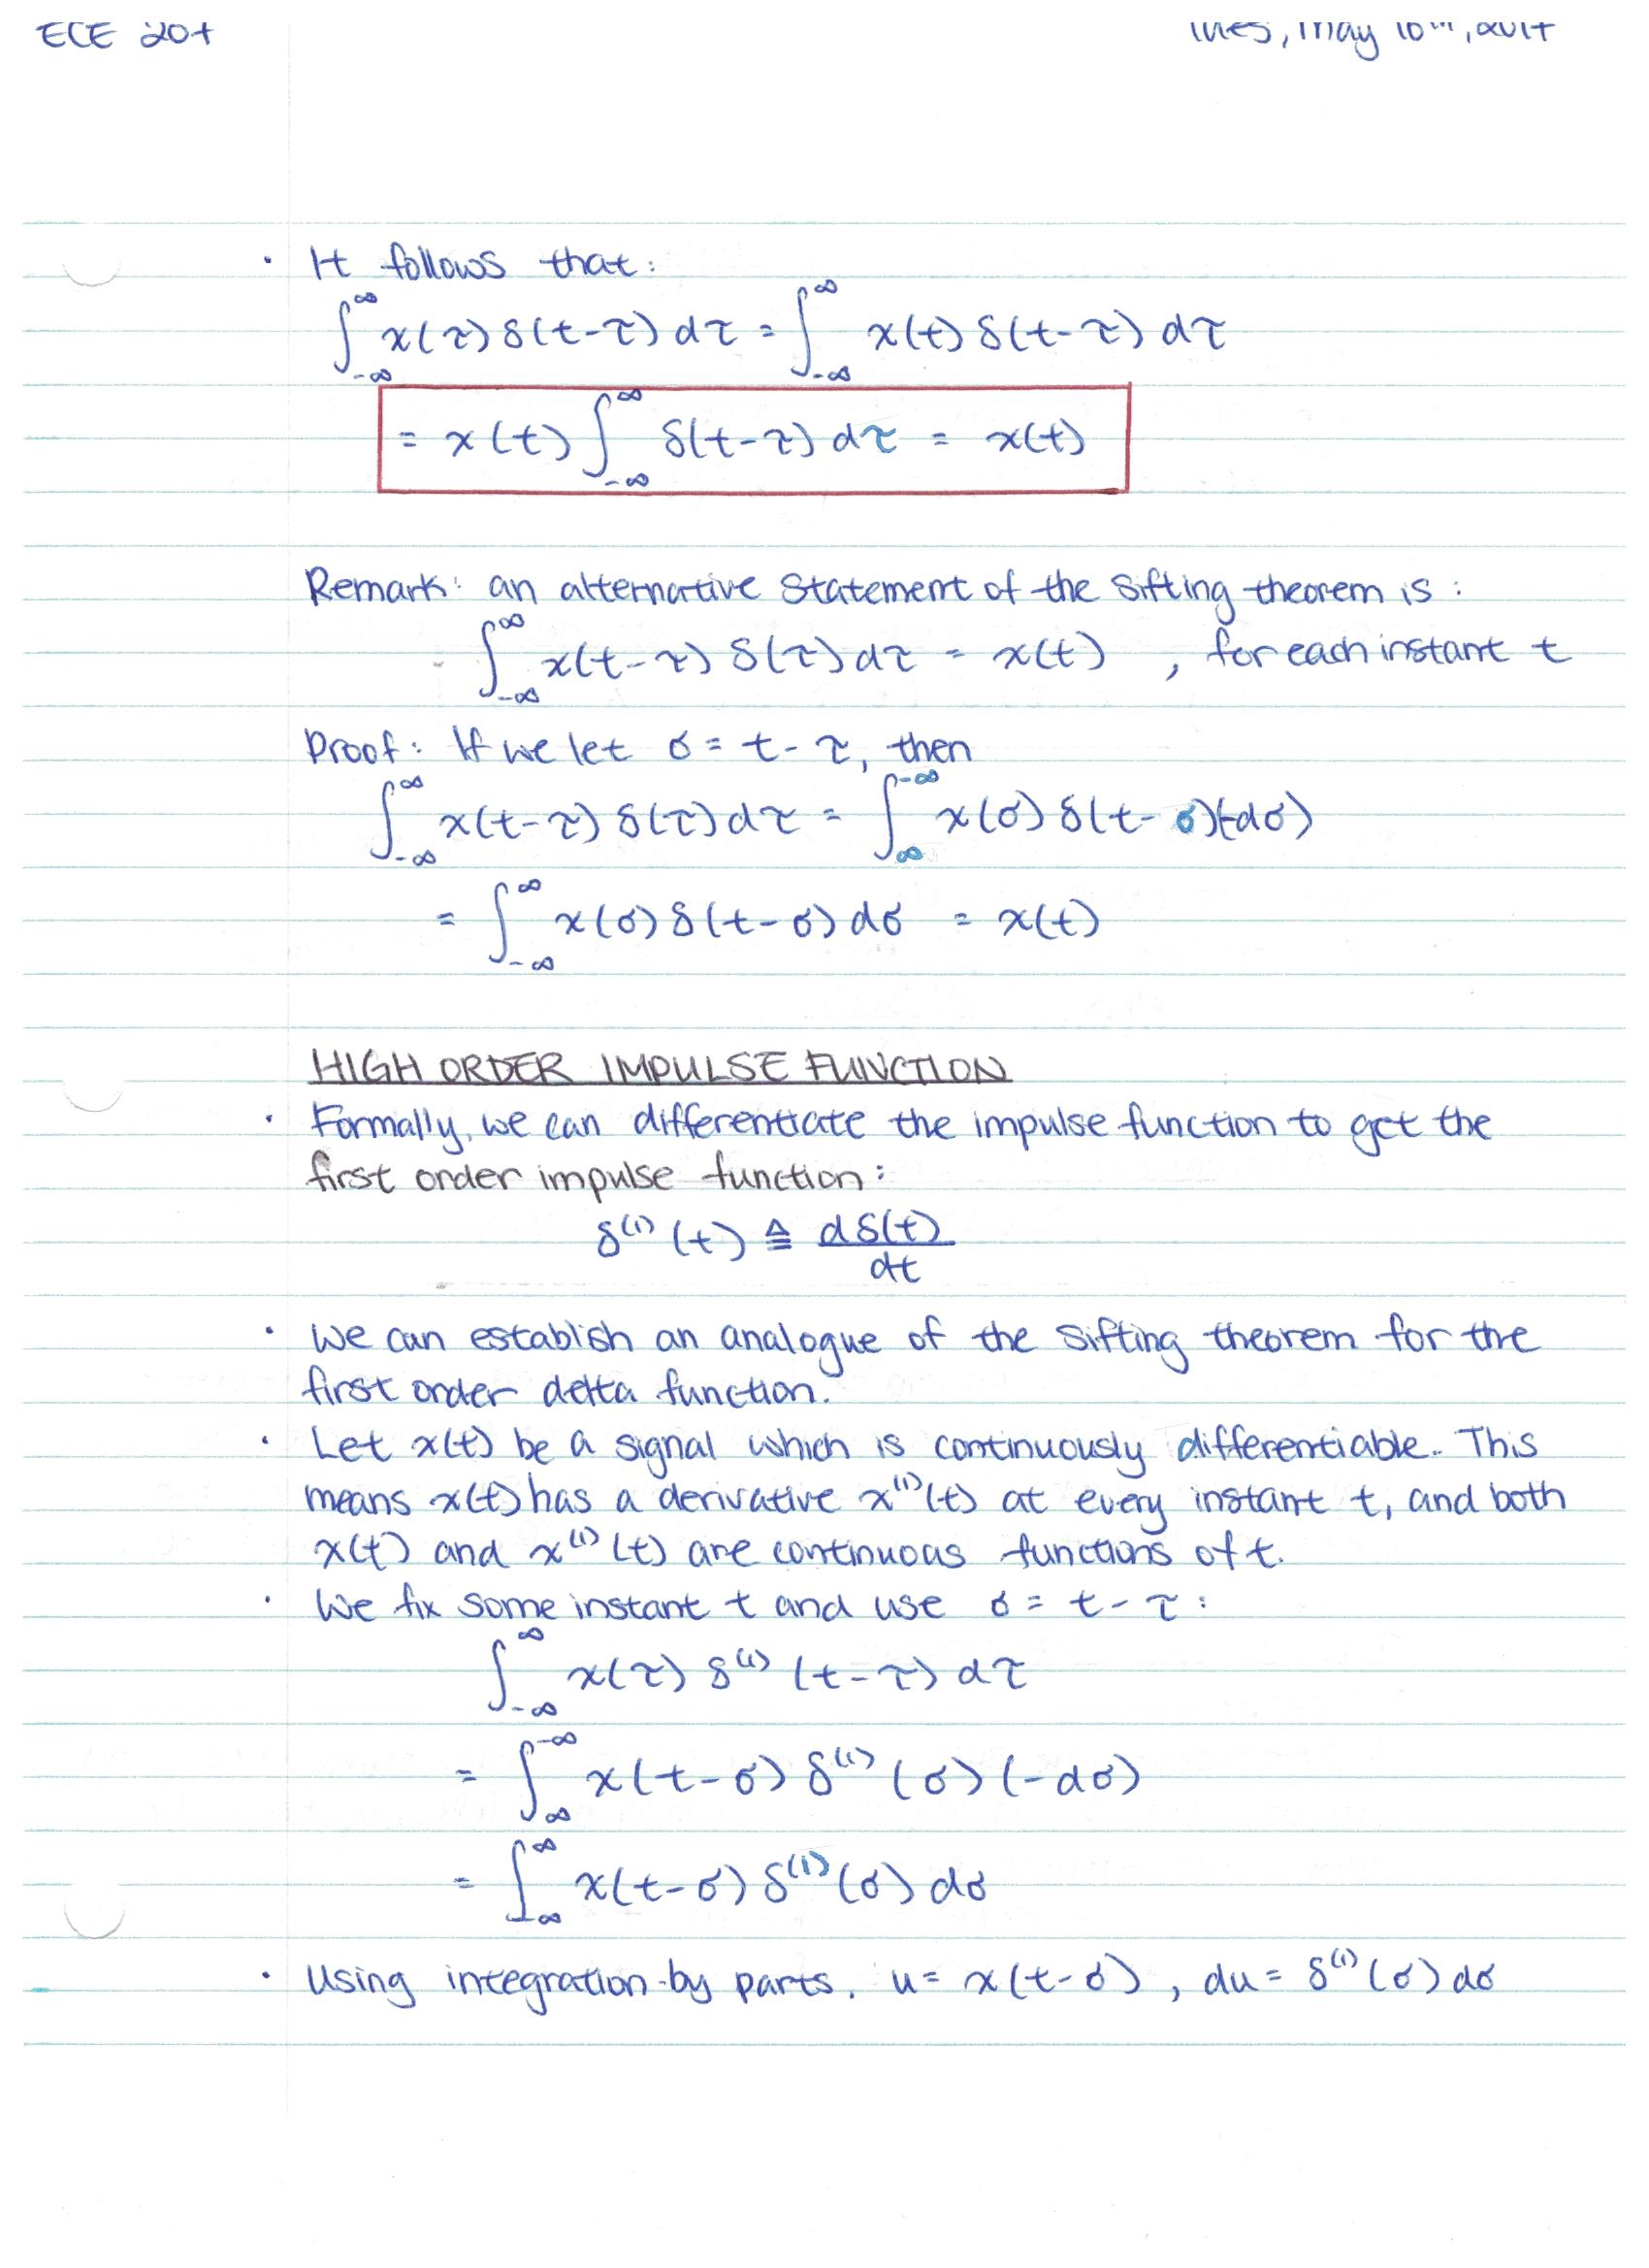 ECE
May 10th,
• It follows that:
∫_{-∞}^{∞} x(τ) δ(t-τ) dτ = ∫_{-∞}^{∞} x(t) δ(t-τ) dτ
= x(t) ∫_{-∞}^{∞} δ(t-τ) dτ = x(t)
Remark: an alternative statement of the sifting theorem is:
∫_{-∞}^{∞} x(t-τ) δ(τ) dτ = x(t) , for each instant t
Proof: If we let σ = t-τ, then
∫_{-∞}^{∞} x(t-τ) δ(τ) dτ = ∫_{∞}^{-∞} x(σ) δ(t-σ)(-dσ)
= ∫_{-∞}^{∞} x(σ) δ(t-σ) dσ = x(t)
HIGH ORDER IMPULSE FUNCTION
• Formally, we can differentiate the impulse function to get the
first order impulse function:
δ^{(1)}(t) ≜ dδ(t)/dt
• We can establish an analogue of the sifting theorem for the
first order delta function.
• Let x(t) be a signal which is continuously differentiable. This
means x(t) has a derivative x^{(1)}(t) at every instant t, and both
x(t) and x^{(1)}(t) are continuous functions of t.
• We fix some instant t and use σ = t-τ:
∫_{-∞}^{∞} x(τ) δ^{(1)}(t-τ) dτ
= ∫_{∞}^{-∞} x(t-σ) δ^{(1)}(σ) (-dσ)
= ∫_{-∞}^{∞} x(t-σ) δ^{(1)}(σ) dσ
• Using integration by parts. u = x(t-σ), du = δ^{(1)}(σ) dσ